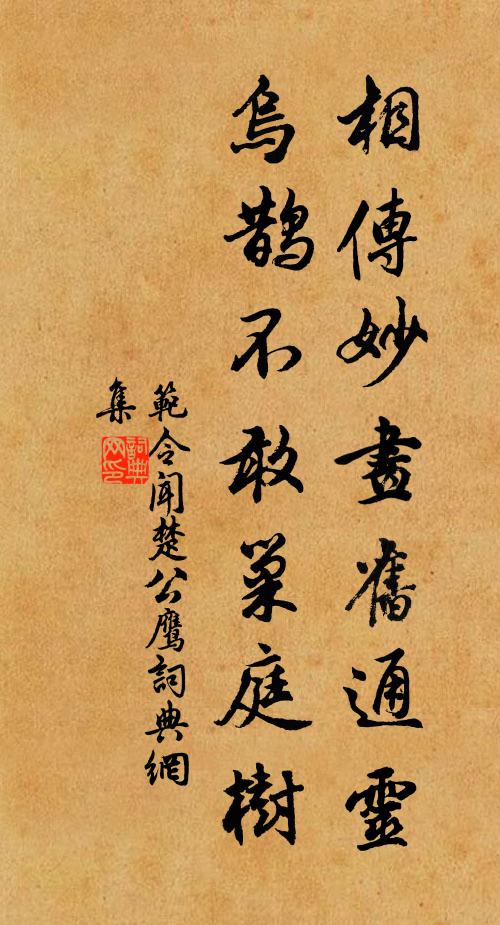 相傳妙畫舊通靈
烏鵲不敢巢庭樹
範令聞楚公鷹詞典網
集
詞典網印